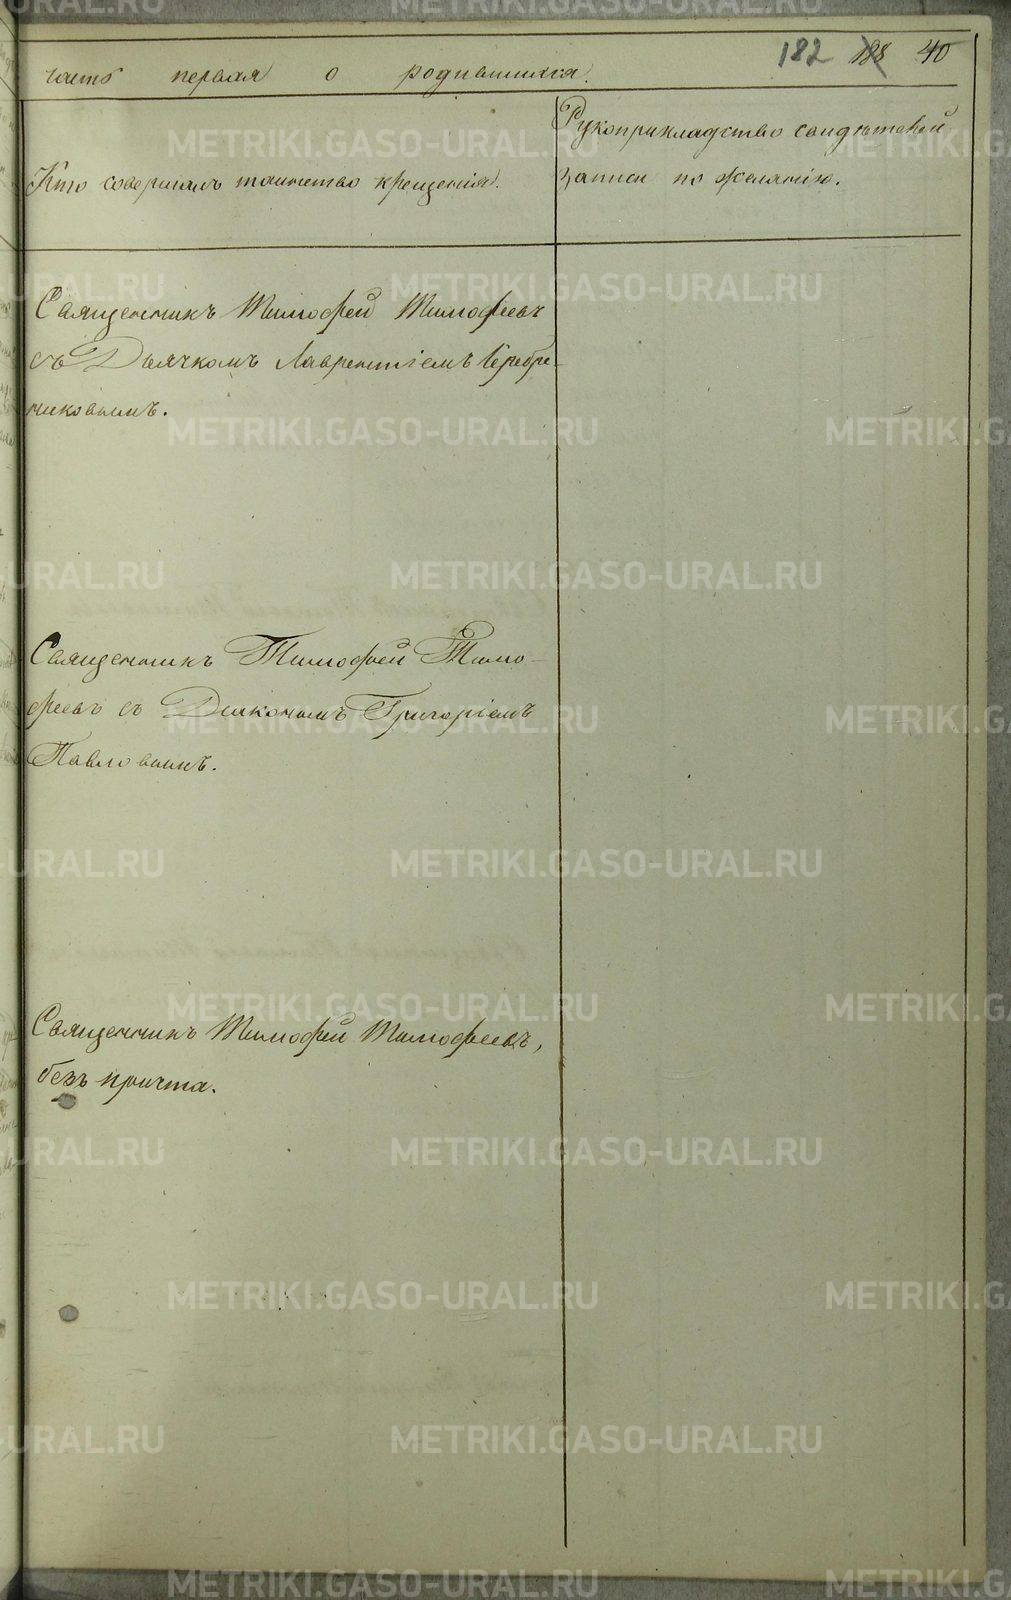 182 188 40
часть первая о родившихся.
Кто совершалъ таинство крещенія.
Рукоприкладство свидѣтелей
записи по желанію.
Священникъ Тимофей Тимофеевъ
съ Дьячкомъ Лаврентіемъ Серебре-
никовымъ.
Священникъ Тимофей Тимо-
феевъ съ Діакономъ Григоріемъ
Павловымъ.
Священникъ Тимофей Тимофеевъ,
безъ причта.
METRIKI.GASO-URAL.RU